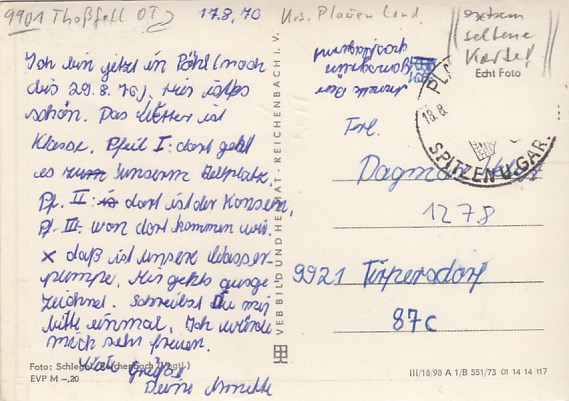 9901 Thoßfell OT
17.8.76
Krs. Plauen Land
extrem
seltene
Karte!
Echt Foto
Ich bin jetzt in Pöhl (noch
bis 29.8.76). Hier ist's
schön. Das Wetter ist
Klasse. Pfeil I: dort geht
es zum unserm Zeltplatz.
Pf. II: dort ist der Konsum,
Pf. III: von dort kommen wir.
x daß ist unsere Wasser-
pumpe. Mir gehts ausge
zeichnet. Schreibst Du mir
bitte einmal. Ich würde
mich sehr freuen.
Viele Grüße
Deine Annette
Foto: Schlegel, Reichenbach (Vogtl.)
EVP M –,20
VEB BILD UND HEIMAT · REICHENBACH I. V.
Annette
PL
18.8
SPITZEN U. GAR.
Frl.
Dagmar
1278
9921 Tirpersdorf
87c
III/18/98 A 1/B 551/73 01 14 14 117